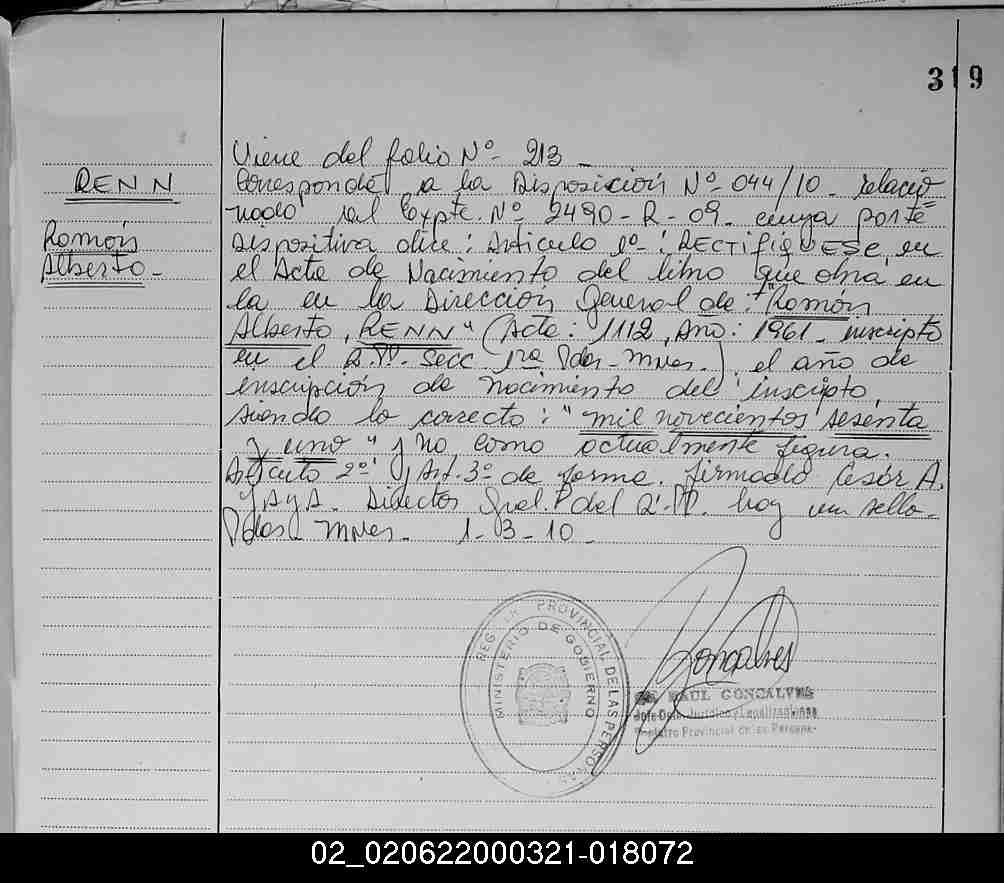 319
Viene del folio Nº 213 -
RENN
Corresponde a la Disposición Nº 044/10 relacio
Ramón
nado al Expte. Nº 2490-R-09. cuya parte
Alberto-
Dispositiva dice: Artículo 1º: RECTIFIQUESE, en
el Acta de Nacimiento del libro que obra en
la en la Dirección General de: "Ramón
Alberto, RENN" (Acta: 1112, Año: 1961 inscripto
en el R.PP. Secc 1ra Pdas-Mnes.), el año de
inscripción de nacimiento del inscripto,
siendo lo correcto: "mil novecientos sesenta
y uno" y no como actualmente figura.
Artículo 2º y Art. 3º de forma. firmado César A.
Director Gral. del R.PP. hay un sello-
Pdas Mnes. 1-3-10-
REGISTRO PROVINCIAL DE LAS PERSONAS
MINISTERIO DE GOBIERNO
Goncalves
RAUL GONCALVES
Jefe Dpto. Jurídico y Legalizaciones
Registro Provincial de las Personas
02_020622000321-018072